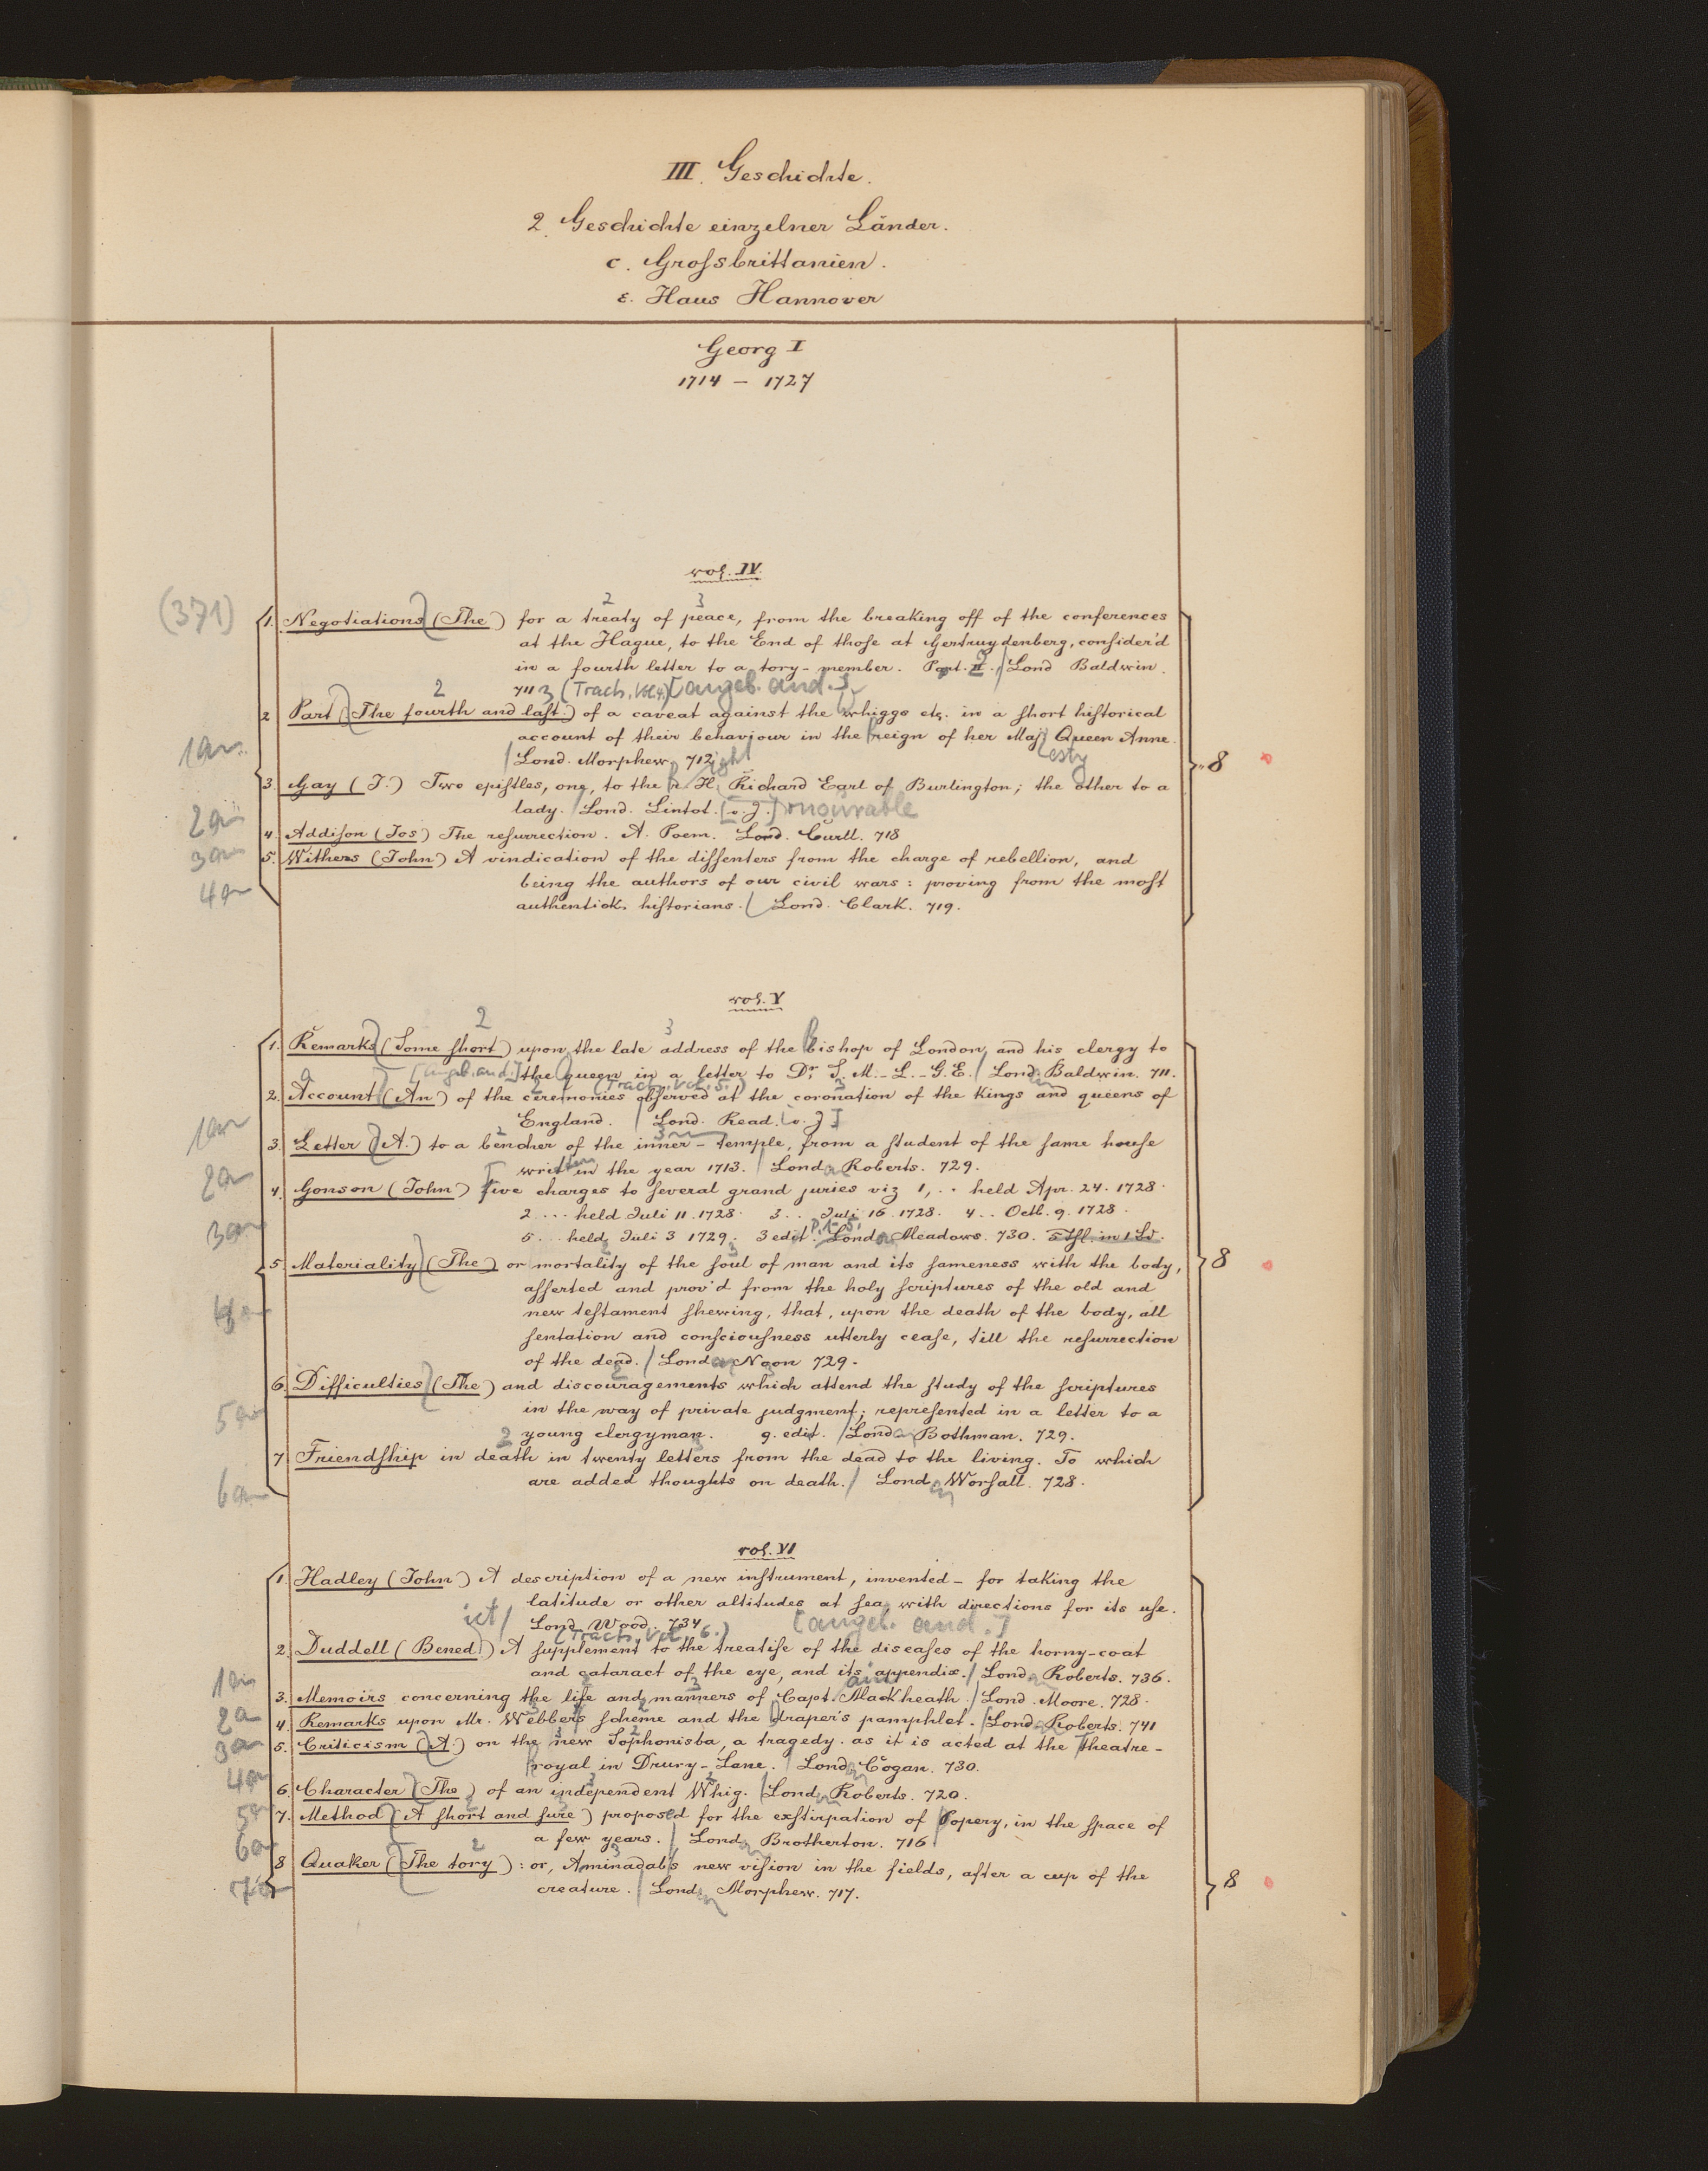 III. Geschichte.
2. Geschichte einzelner Länder.
c. Grossbrittanien.
ε. Haus Hannover
Georg I
1714 – 1727
vol. IV.
(371)
1. Negotiations (The) for a treaty of peace, from the breaking off of the conferences
at the Hague, to the End of those at Gertruydenberg, consider'd
in a fourth letter to a tory-member. Part. II. Lond Baldwin.
711 (Tracts, Vol. 4.) [angeb. and.]
2 Part (The fourth and last) of a caveat against the whiggs etc. in a short historical
account of their behaviour in the reign of her Maj esty Queen Anne.
Lond. Morphew. 712
3. Gay (J.) Two epistles, one, to the r. ight H. onourable Richard Earl of Burlington; the other to a
lady. Lond. Lintot. [o. J.]
4. Addison (Jos) The resurrection. A. Poem. Lond. Curll. 718
5. Withers (John) A vindication of the dissenters from the charge of rebellion, and
being the authors of our civil wars: proving from the most
authentick historians. Lond. Clark. 719.
8
vol. V
1. Remarks (Some short) upon the late address of the bishop of London and his clergy to
[angeb. and.] the queen in a letter to Dr. S. M.-L.-G.E. Lond. Baldwin. 711.
(Tracts, Vol. 5.)
2. Account (An) of the ceremonies observed at the coronation of the kings and queens of
England. Lond. Read. [o. J.]
3. Letter (A.) to a bencher of the inner-temple, from a student of the same house
written in the year 1713. Lond. Roberts. 729.
4. Gonson (John) Five charges to several grand juries viz 1,.. held Apr. 24. 1728.
2 ... held Juli 11. 1728. 3.. Juli 16. 1728. 4.. Octb. 9. 1728.
5... held Juli 3 1729. 3 edit. P. 1-5. Lond. Meadows. 730. 5 Thl. in 1 Bd.
5 Materiality (The) or mortality of the soul of man and its sameness with the body,
asserted and prov'd from the holy scriptures of the old and
new testament shewing, that, upon the death of the body, all
sentation and consciousness utterly cease, till the resurrection
of the dead. Lond. Noon 729.
6. Difficulties (The) and discouragements which attend the study of the scriptures
in the way of private judgment; represented in a letter to a
young clergyman. 9. edit. Lond. Bothman. 729.
7 Friendship in death in twenty letters from the dead to the living. To which
are added thoughts on death. Lond. Worsall. 728.
8
vol. VI
1. Hadley (John) A description of a new instrument, invented – for taking the
latitude or other altitudes at sea, with directions for its use.
Lond. Wood. 734 [angeb. and.]
(Tracts, Vol. 6.)
2. Duddell (Bened.) A supplement to the treatise of the diseases of the horny-coat
and cataract of the eye, and its appendix. Lond. Roberts. 736.
3. Memoirs concerning the life and manners of Capt. Mackheath. Lond. Moore. 728.
4. Remarks upon Mr. Webber's scheme and the draper's pamphlet. Lond. Roberts. 741
5. Criticism (A.) on the new Sophonisba, a tragedy. as it is acted at the Theatre-
royal in Drury-Lane. Lond. Cogan. 730.
6. Character (The) of an independent Whig. Lond. Roberts. 720.
7. Method (A short and sure) proposed for the exstirpation of Popery, in the space of
a few years. Lond. Brotherton. 716
8 Quaker (The tory): or, Aminadab's new vision in the fields, after a cup of the
creature. Lond. Morphew. 717.
8